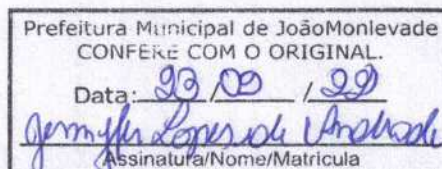 Prefeitura Municipal de JoãoMonlevade
CONFERE COM O ORIGINAL.
Data: 23 / 09 / 22
Jennyfer Lopes de Andrade
Assinatura/Nome/Matricula